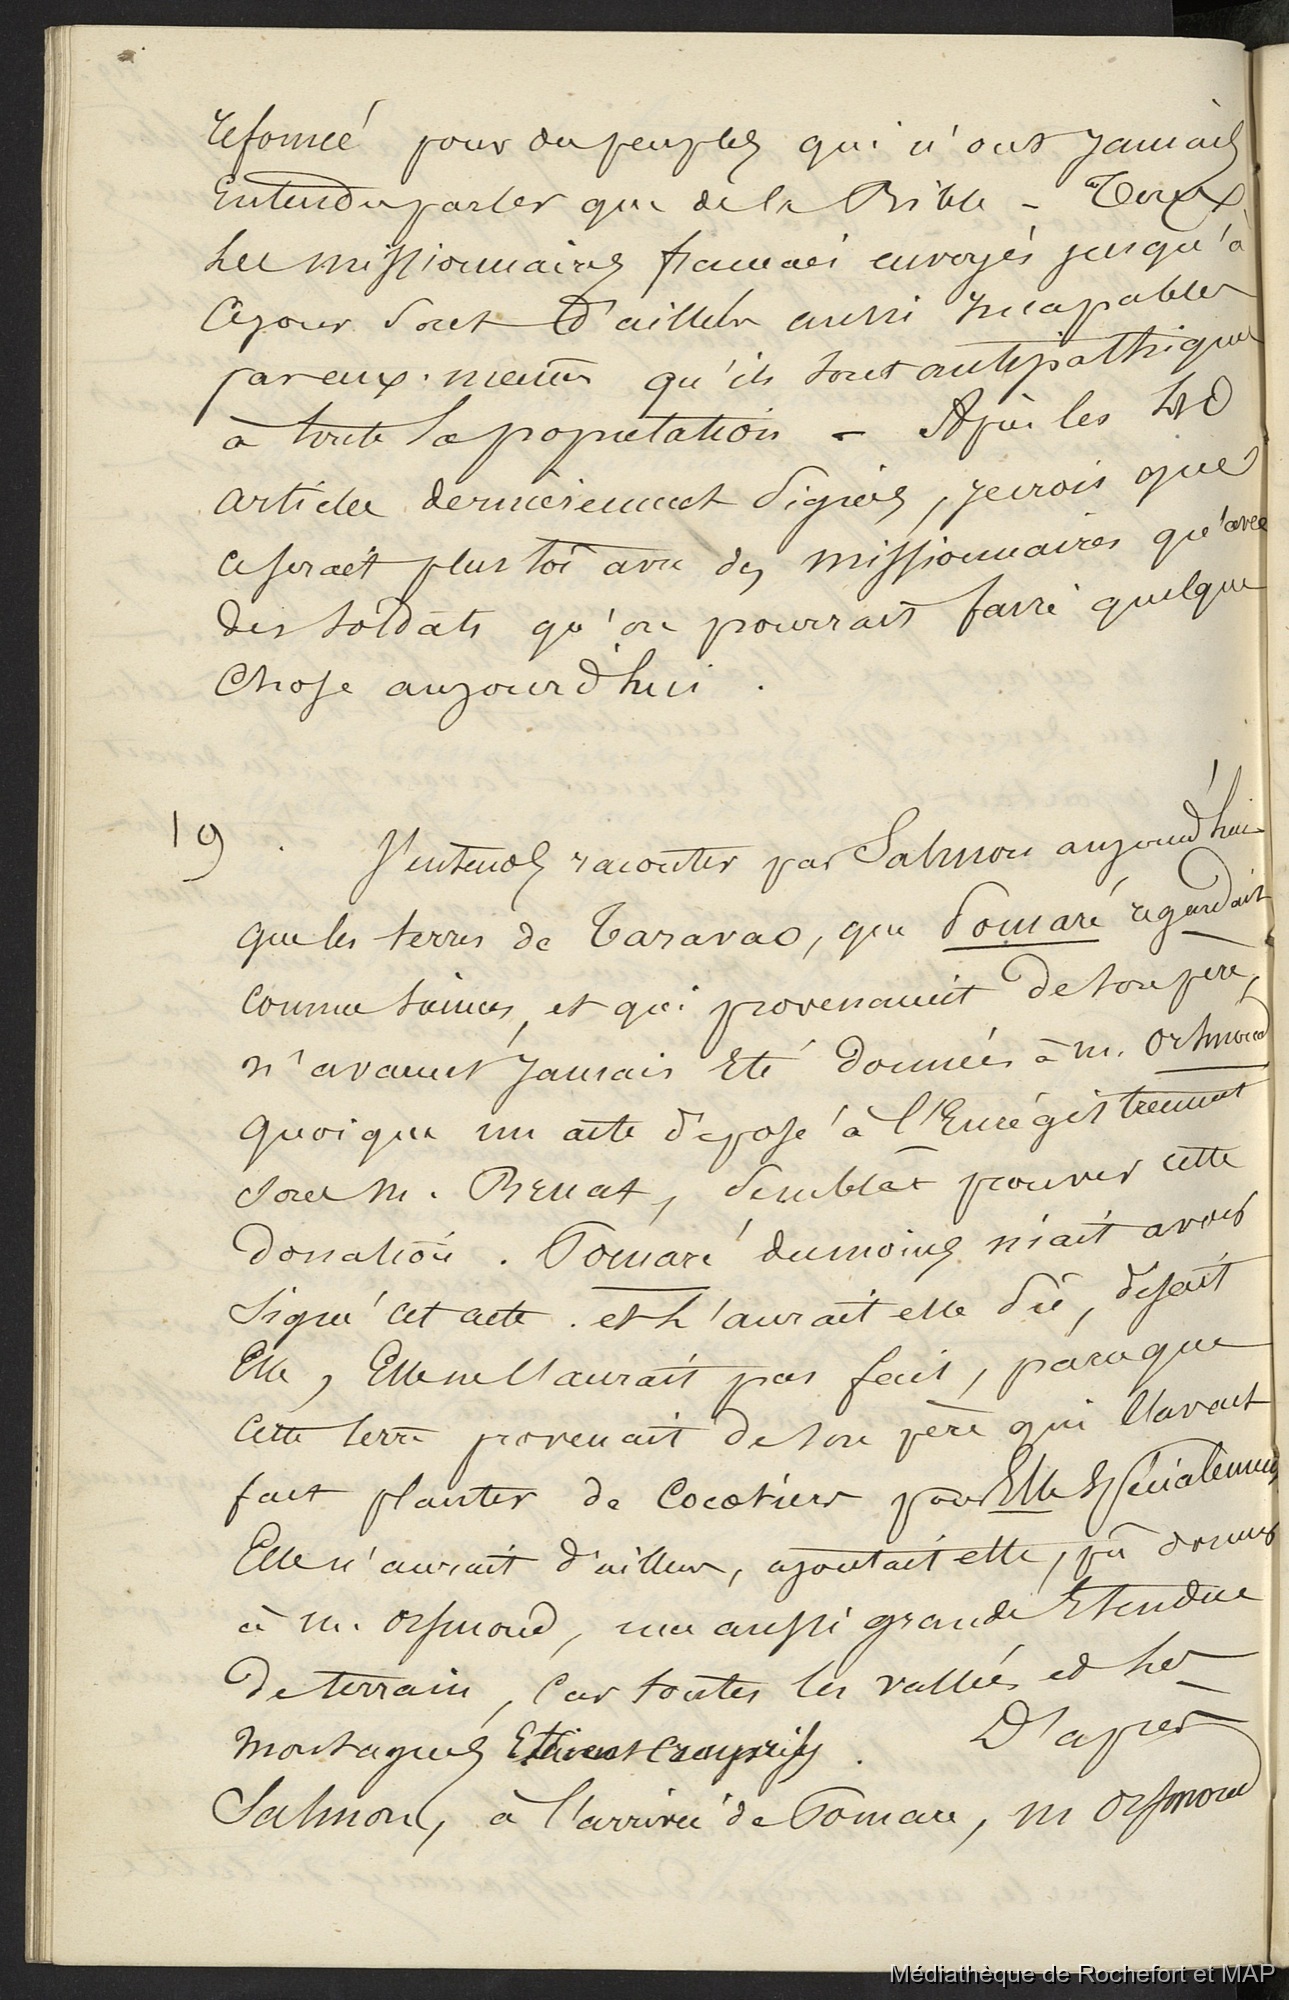 reformée pour des peuples qui n'ont jamais
Entendu parler que de la Bible - Tous
les missionnaires francais envoyés jusqu'à
ce jour sont d'ailleurs aussi Incapables
par eux-mêmes qu'ils sont antipathiques
à toute la population - Après les
articles dernièrement signés, je crois que
ce serait plustôt avec des missionnaires qu'avec
des soldats qu'on pourrait faire quelque
chose aujourd'hui.
19. J'entends raconter par Salmon aujourd'hui
que les terres de Taravao, que Pomaré regardait
comme siennes, et qui provenaient de son père,
n'avaient jamais Eté données à m. Orsmond
quoique un acte déposé à l'Enrégistrement
sous m. Benat, semblât prouver cette
donation. Pomaré du moins niait avoir
signé cet acte. et l'aurait elle dû, disait
Elle, Elle ne l'aurait pas fait, parceque
cette terre provenait de son père qui l'avait
fait planter de Cocotiers pour Elle spécialement
Elle n'aurait d'ailleurs, ajoutait elle, pû donner
à m. Orsmond, une aussi grande Etendue
de terrain, Car toutes les vallées et les
montagnes Etaient Comprises. D'après
Salmon, à l'arrivée de Pomare, m Orsmond
Médiathèque de Rochefort et MAP